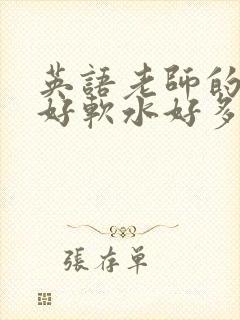 英語老師的
好軟水好多
張存單